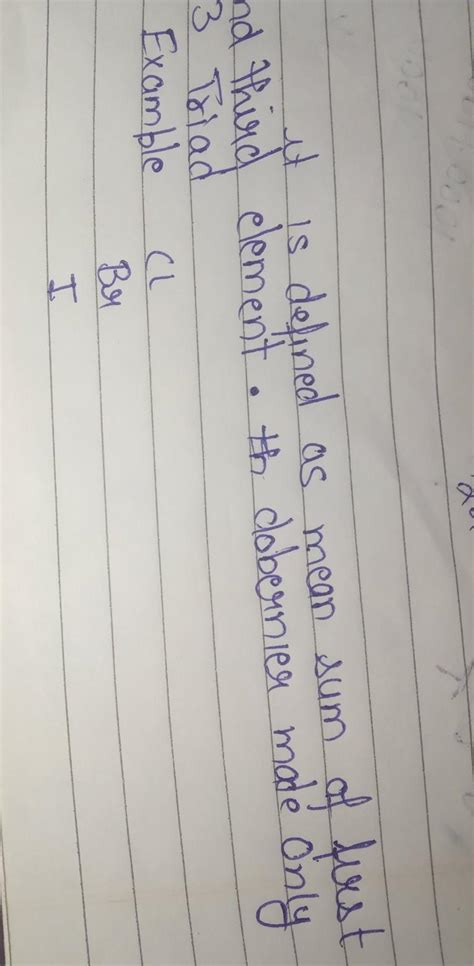 it is defined as mean sum of first
nd third element. th dobernier made only
3 Triad
Examble Cl
Br
I